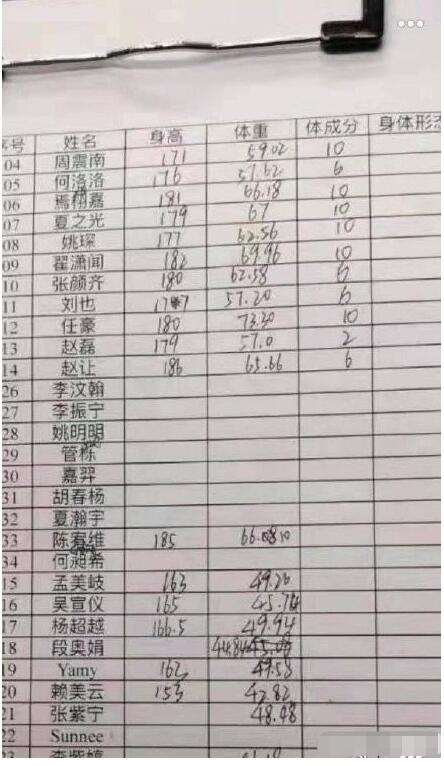 序号 姓名 身高 体重 体成分 身体形态
04 周震南 171 59.02 10
05 何洛洛 176 57.62 6
06 焉栩嘉 181 66.18 10
07 夏之光 179 67 10
08 姚琛 177 62.56 10
09 翟潇闻 182 69.96 10
10 张颜齐 180 62.58 6
11 刘也 57.20 6
12 任豪 180 73.30 10
13 赵磊 179 57.0 2
14 赵让 186 65.66 6
26 李汶翰
27 李振宁
28 姚明明
29 管栎
30 嘉羿
31 胡春杨
32 夏瀚宇
33 陈宥维 185 66.08 10
34 何昶希
15 孟美岐 163 49.20
16 吴宣仪 165 45.74
17 杨超越 166.5 49.94
18 段奥娟 44.84
19 Yamy 162 49.58
20 赖美云 153 42.82
21 张紫宁 48.48
22 Sunnee
23 李紫婷